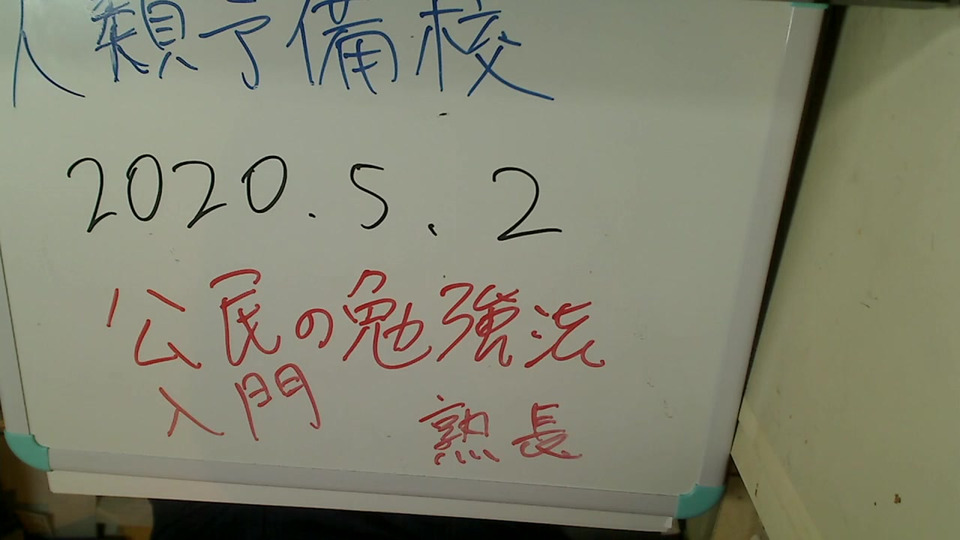 人類予備校
2020.5.2
公民の勉強法
入門
熟長